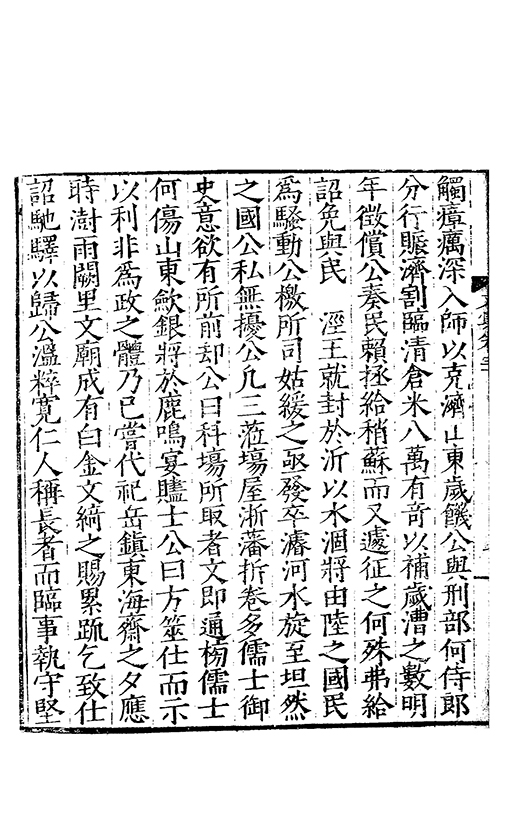 觸瘴癘深入師以克濟山東歲饑公與刑部何侍郎
分行賑濟割臨清倉米八萬有竒以補歲漕之數明
年徵償公奏民賴拯給稍蘇而又遽征之何殊弗給
詔免與民　涇王就封於沂以水涸將由陸之國民
爲騷動公檄所司姑緩之亟發卒濬河水旋至坦然
之國公私無擾公凡三蒞場屋浙藩折卷多儒士御
史意欲有所前却公曰科塲所取者文即通榜儒士
何傷山東歛銀將於鹿鳴宴贐士公曰方筮仕而示
以利非爲政之體乃已嘗代祀岳鎭東海齋之夕應
時澍雨闕里文廟成有白金文綺之賜累䟽乞致仕
詔馳驛以歸公溫粹寛仁人稱長者而臨事執守堅